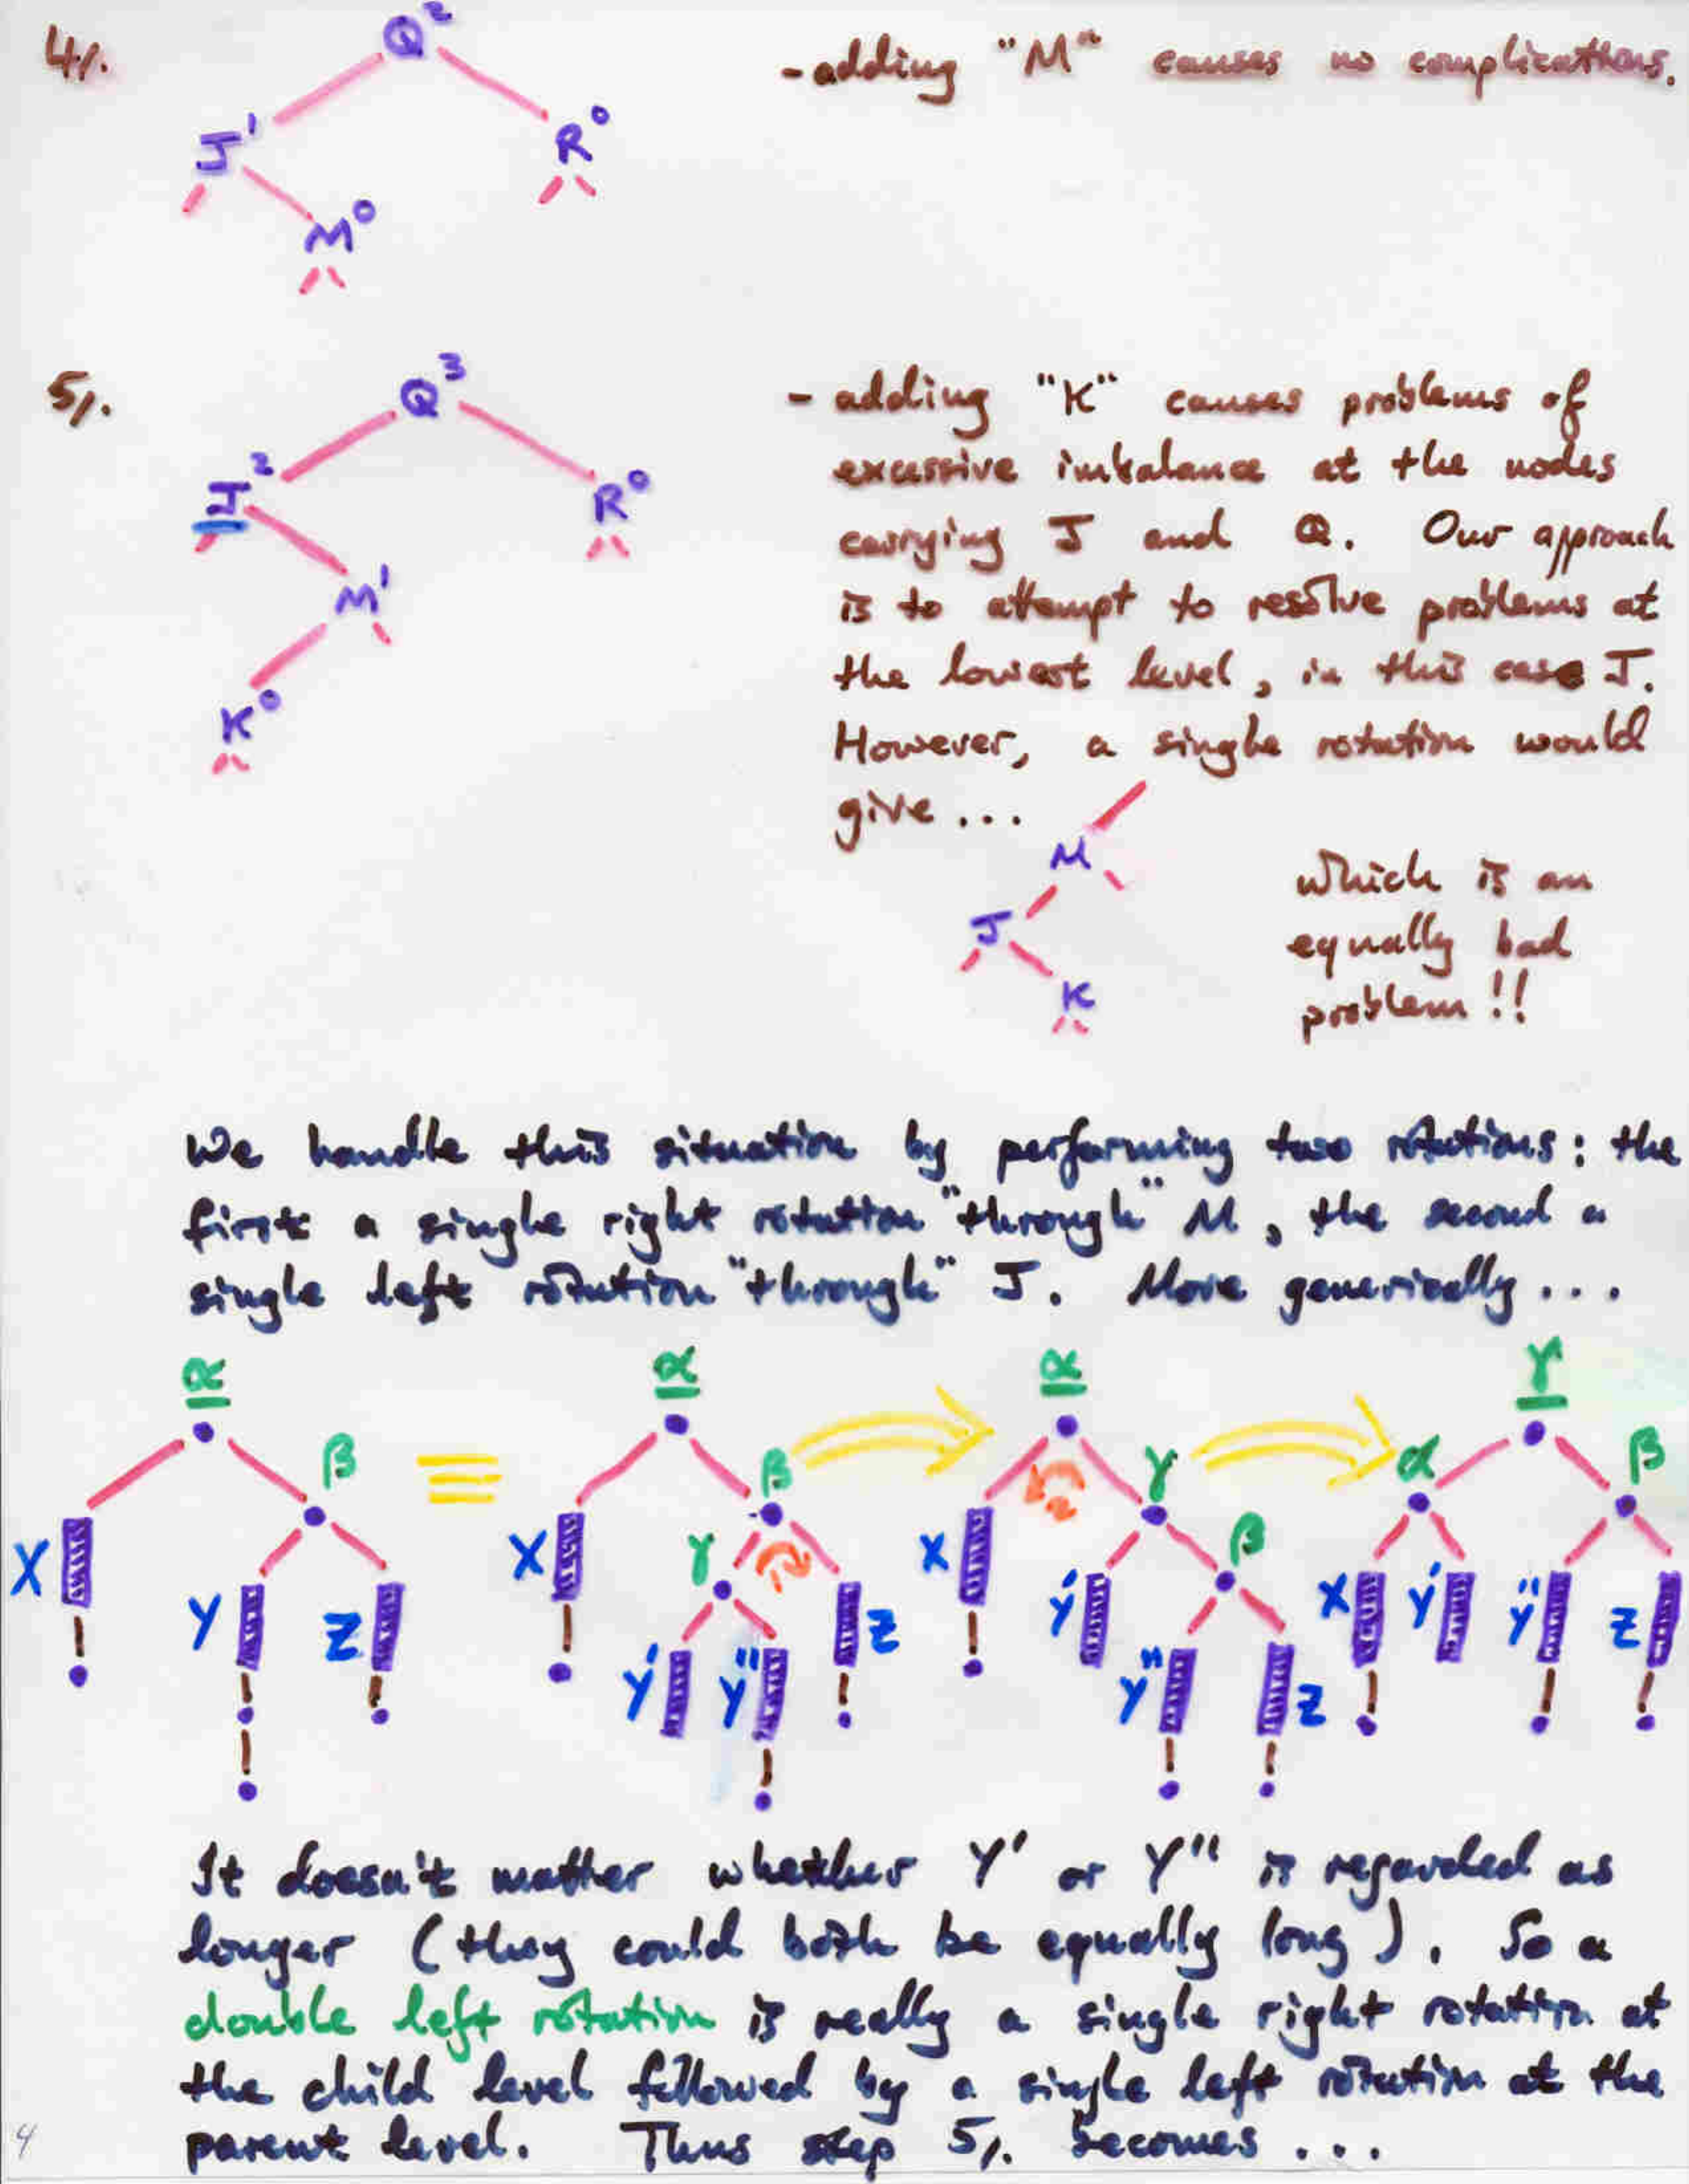 4/.
Q²
- adding "M" causes no complications.
J¹
R⁰
M⁰
5/.
Q³
- adding "K" causes problems of
excessive imbalance at the nodes
J²
R⁰
carrying J and Q. Our approach
M¹
is to attempt to resolve problems at
the lowest level, in this case J.
K⁰
However, a single rotation would
give...
M
J
K
which is an
equally bad
problem!!
We handle this situation by performing two rotations: the
first a single right rotation "through" M, the second a
single left rotation "through" J. More generically...
α
β
X
Y
Z
≡
α
β
γ
X
Y'
Y''
Z
α
γ
β
X
Y'
Y''
Z
γ
α
β
X
Y'
Y''
Z
It doesn't matter whether Y' or Y'' is regarded as
longer (they could both be equally long). So a
double left rotation is really a single right rotation at
the child level followed by a single left rotation at the
parent level. Thus step 5/. becomes...
4